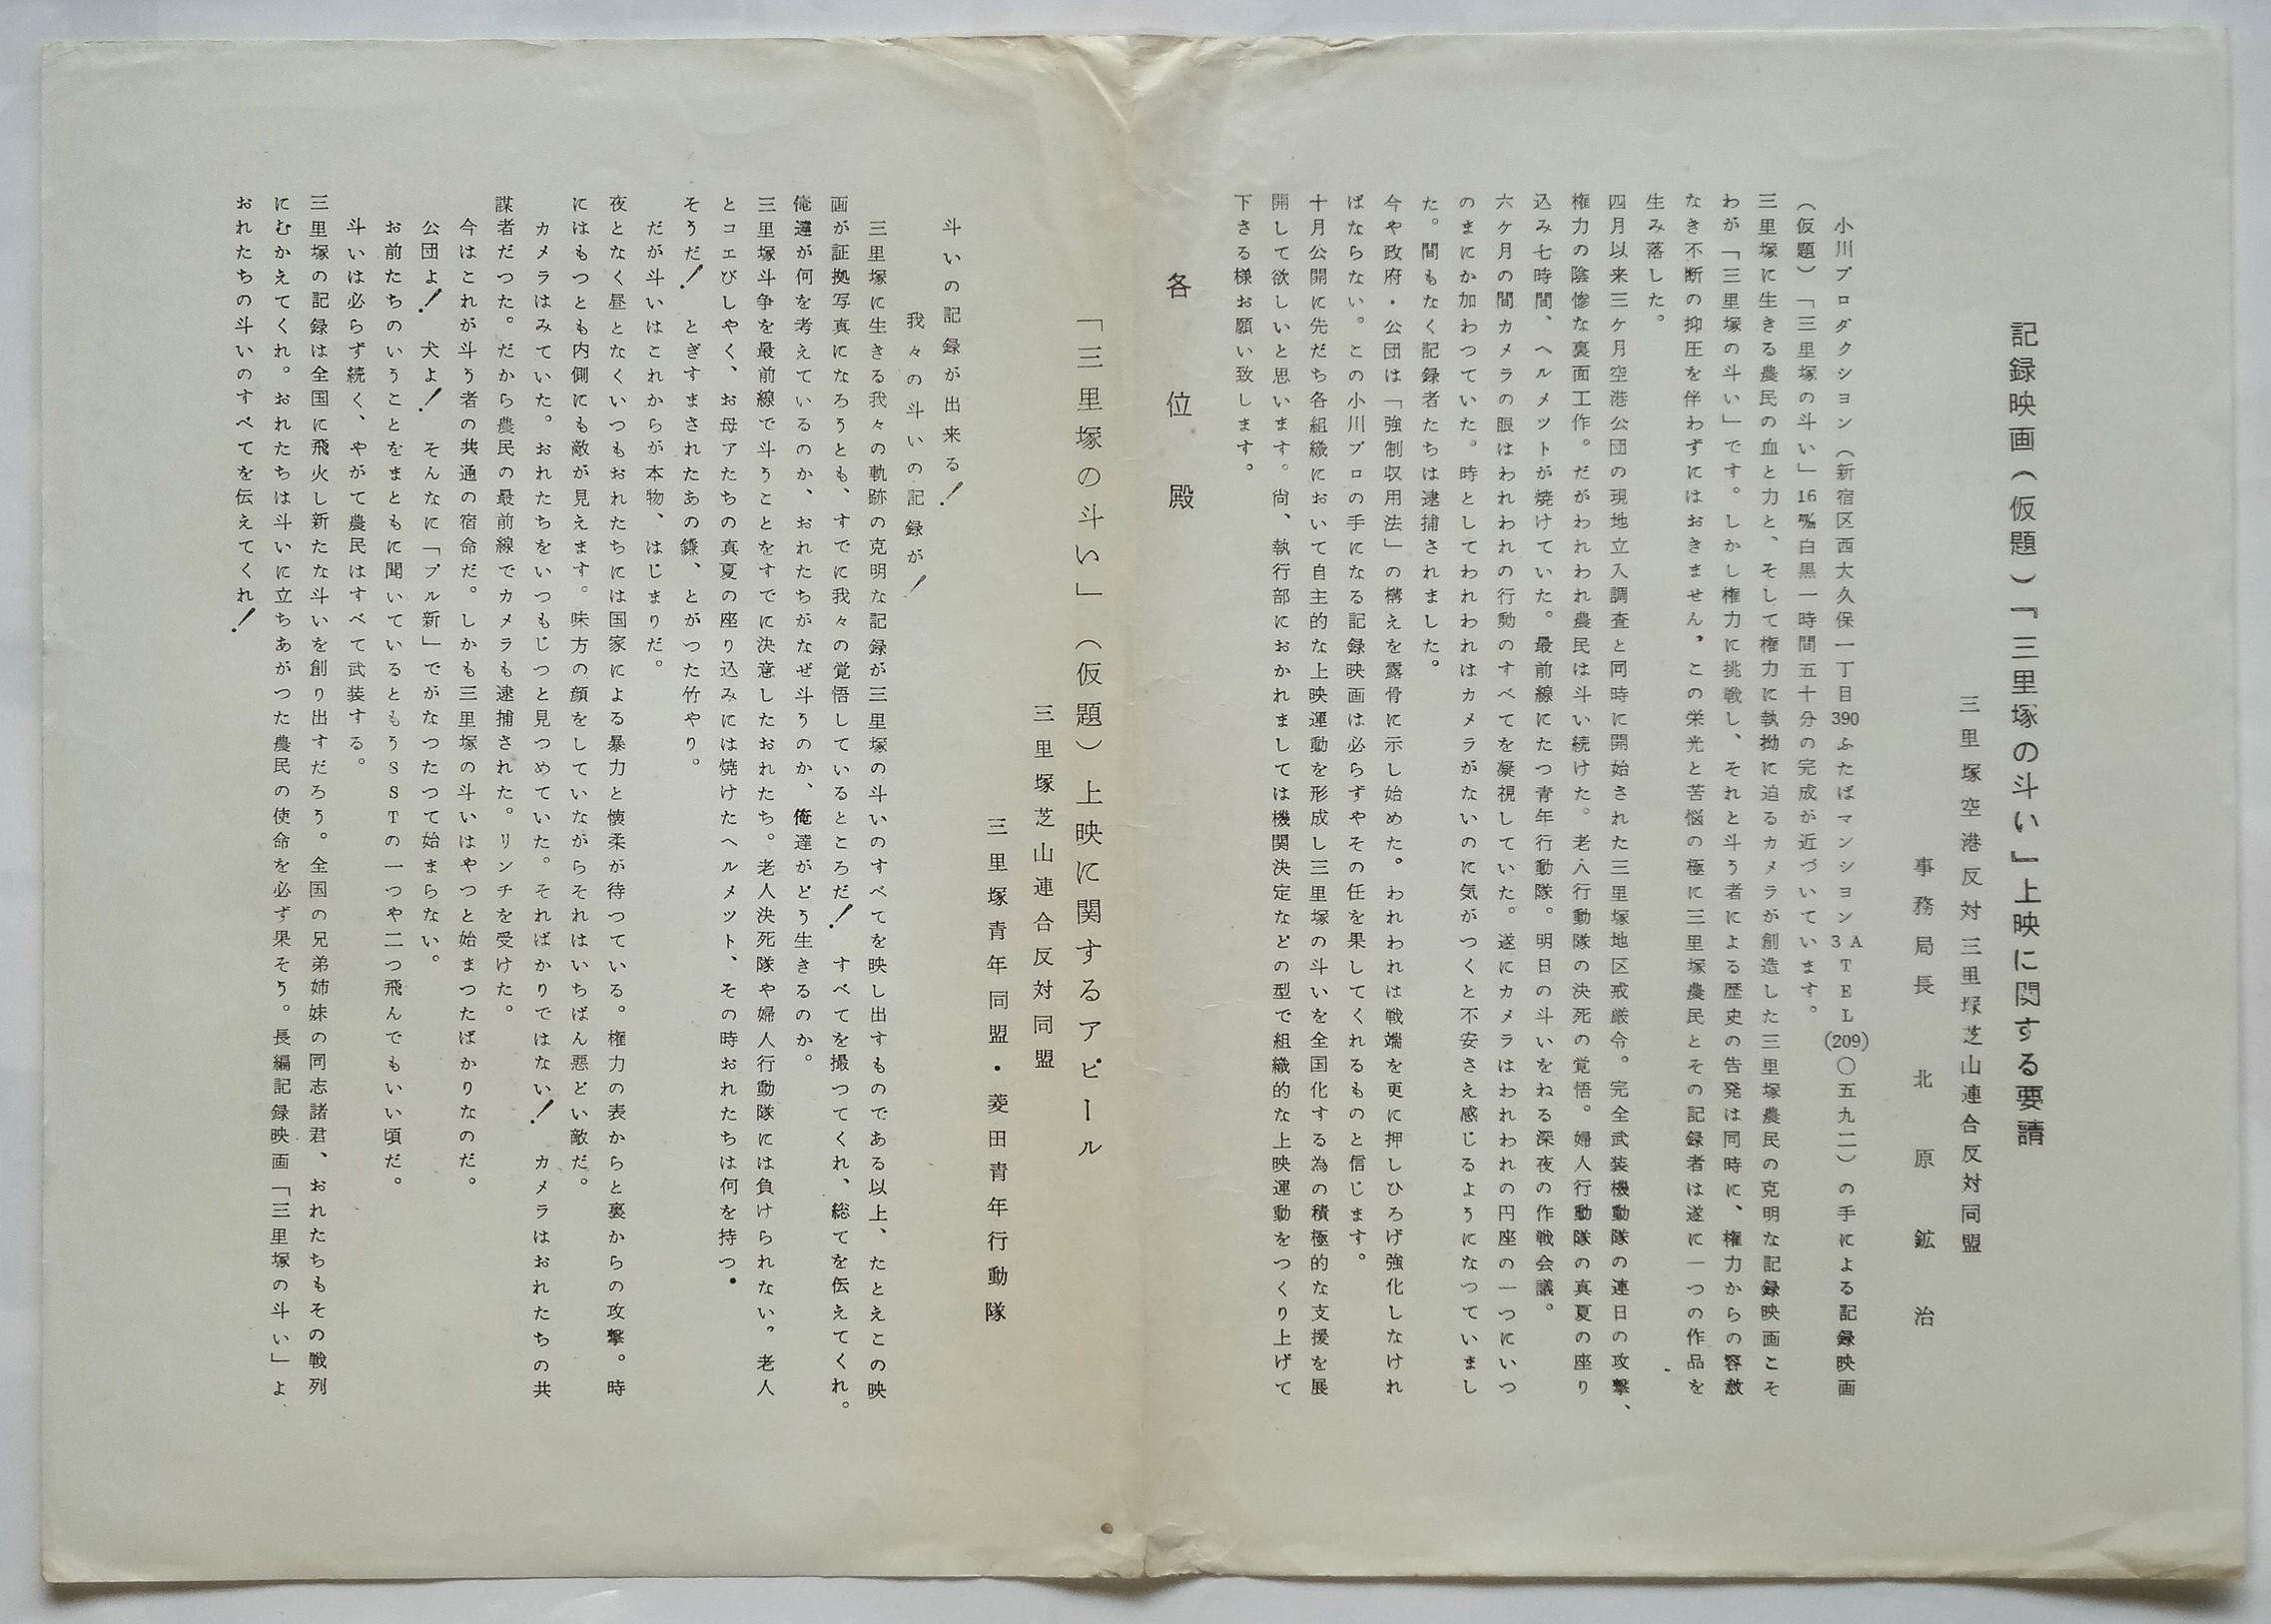 記録映画(仮題)「三里塚の斗い」上映に関する要請
三里塚空港反対三里塚芝山連合反対同盟
事務局長　北原鉱治
小川プロダクション(新宿区西大久保一丁目390ふたばマンション3A TEL(209)〇五九二)の手による記録映画
(仮題)「三里塚の斗い」16㎜白黒一時間五十分の完成が近づいています。
三里塚に生きる農民の血と力と、そして権力に執拗に迫るカメラが創造した三里塚農民の克明な記録映画こそ
わが「三里塚の斗い」です。しかし権力に挑戦し、それと斗う者による歴史の告発は同時に、権力からの容赦
なき不断の抑圧を伴わずにはおきません。この栄光と苦悩の極に三里塚農民とその記録者は遂に一つの作品を
生み落した。
四月以来三ケ月空港公団の現地立入調査と同時に開始された三里塚地区戒厳令。完全武装機動隊の連日の攻撃、
権力の陰惨な裏面工作。だがわれわれ農民は斗い続けた。老人行動隊の決死の覚悟。婦人行動隊の真夏の座り
込み七時間、ヘルメットが焼けていた。最前線にたつ青年行動隊。明日の斗いをねる深夜の作戦会議。
六ケ月の間カメラの眼はわれわれの行動のすべてを凝視していた。遂にカメラはわれわれの円座の一つにいつ
のまにか加わつていた。時としてわれわれはカメラがないのに気がつくと不安さえ感じるようになつていまし
た。間もなく記録者たちは逮捕されました。
今や政府・公団は「強制収用法」の構えを露骨に示し始めた。われわれは戦端を更に押しひろげ強化しなけれ
ばならない。この小川プロの手になる記録映画は必らずやその任を果してくれるものと信じます。
十月公開に先だち各組織において自主的な上映運動を形成し三里塚の斗いを全国化する為の積極的な支援を展
開して欲しいと思います。尚、執行部におかれましては機関決定などの型で組織的な上映運動をつくり上げて
下さる様お願い致します。
各位殿
「三里塚の斗い」(仮題)上映に関するアピール
三里塚芝山連合反対同盟
三里塚青年同盟・菱田青年行動隊
斗いの記録が出来る！
我々の斗いの記録が！
三里塚に生きる我々の軌跡の克明な記録が三里塚の斗いのすべてを映し出すものである以上、たとえこの映
画が証拠写真になろうとも、すでに我々の覚悟しているところだ！　すべてを撮つてくれ、総てを伝えてくれ。
俺達が何を考えているのか、おれたちがなぜ斗うのか、俺達がどう生きるのか。
三里塚斗争を最前線で斗うことをすでに決意したおれたち。老人決死隊や婦人行動隊には負けられない。老人
とコエびしやく、お母アたちの真夏の座り込みには焼けたヘルメット、その時おれたちは何を持つ。
そうだ！　とぎすまされたあの鎌、とがつた竹やり。
だが斗いはこれからが本物、はじまりだ。
夜となく昼となくいつもおれたちには国家による暴力と懐柔が待つている。権力の表からと裏からの攻撃。時
にはもつとも内側にも敵が見えます。味方の顔をしていながらそれはいちばん悪どい敵だ。
カメラはみていた。おれたちをいつもじつと見つめていた。そればかりではない！　カメラはおれたちの共
謀者だつた。だから農民の最前線でカメラも逮捕された。リンチを受けた。
今はこれが斗う者の共通の宿命だ。しかも三里塚の斗いはやつと始まつたばかりなのだ。
公団よ！　犬よ！　そんなに「ブル新」でがなつたつて始まらない。
お前たちのいうことをまともに聞いているともうSSTの一つや二つ飛んでもいい頃だ。
斗いは必らず続く、やがて農民はすべて武装する。
三里塚の記録は全国に飛火し新たな斗いを創り出すだろう。全国の兄弟姉妹の同志諸君、おれたちもその戦列
にむかえてくれ。おれたちは斗いに立ちあがつた農民の使命を必ず果そう。長編記録映画「三里塚の斗い」よ
おれたちの斗いのすべてを伝えてくれ！